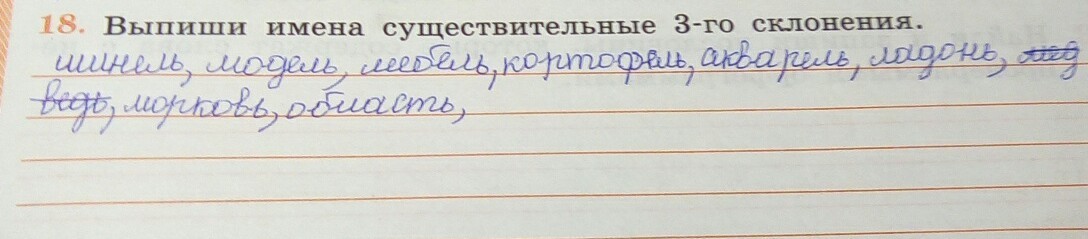 18. Выпиши имена существительные 3-го склонения.
шинель, модель, мебель, кортофель, акварель, ладонь, мед
ведь, морковь, область,